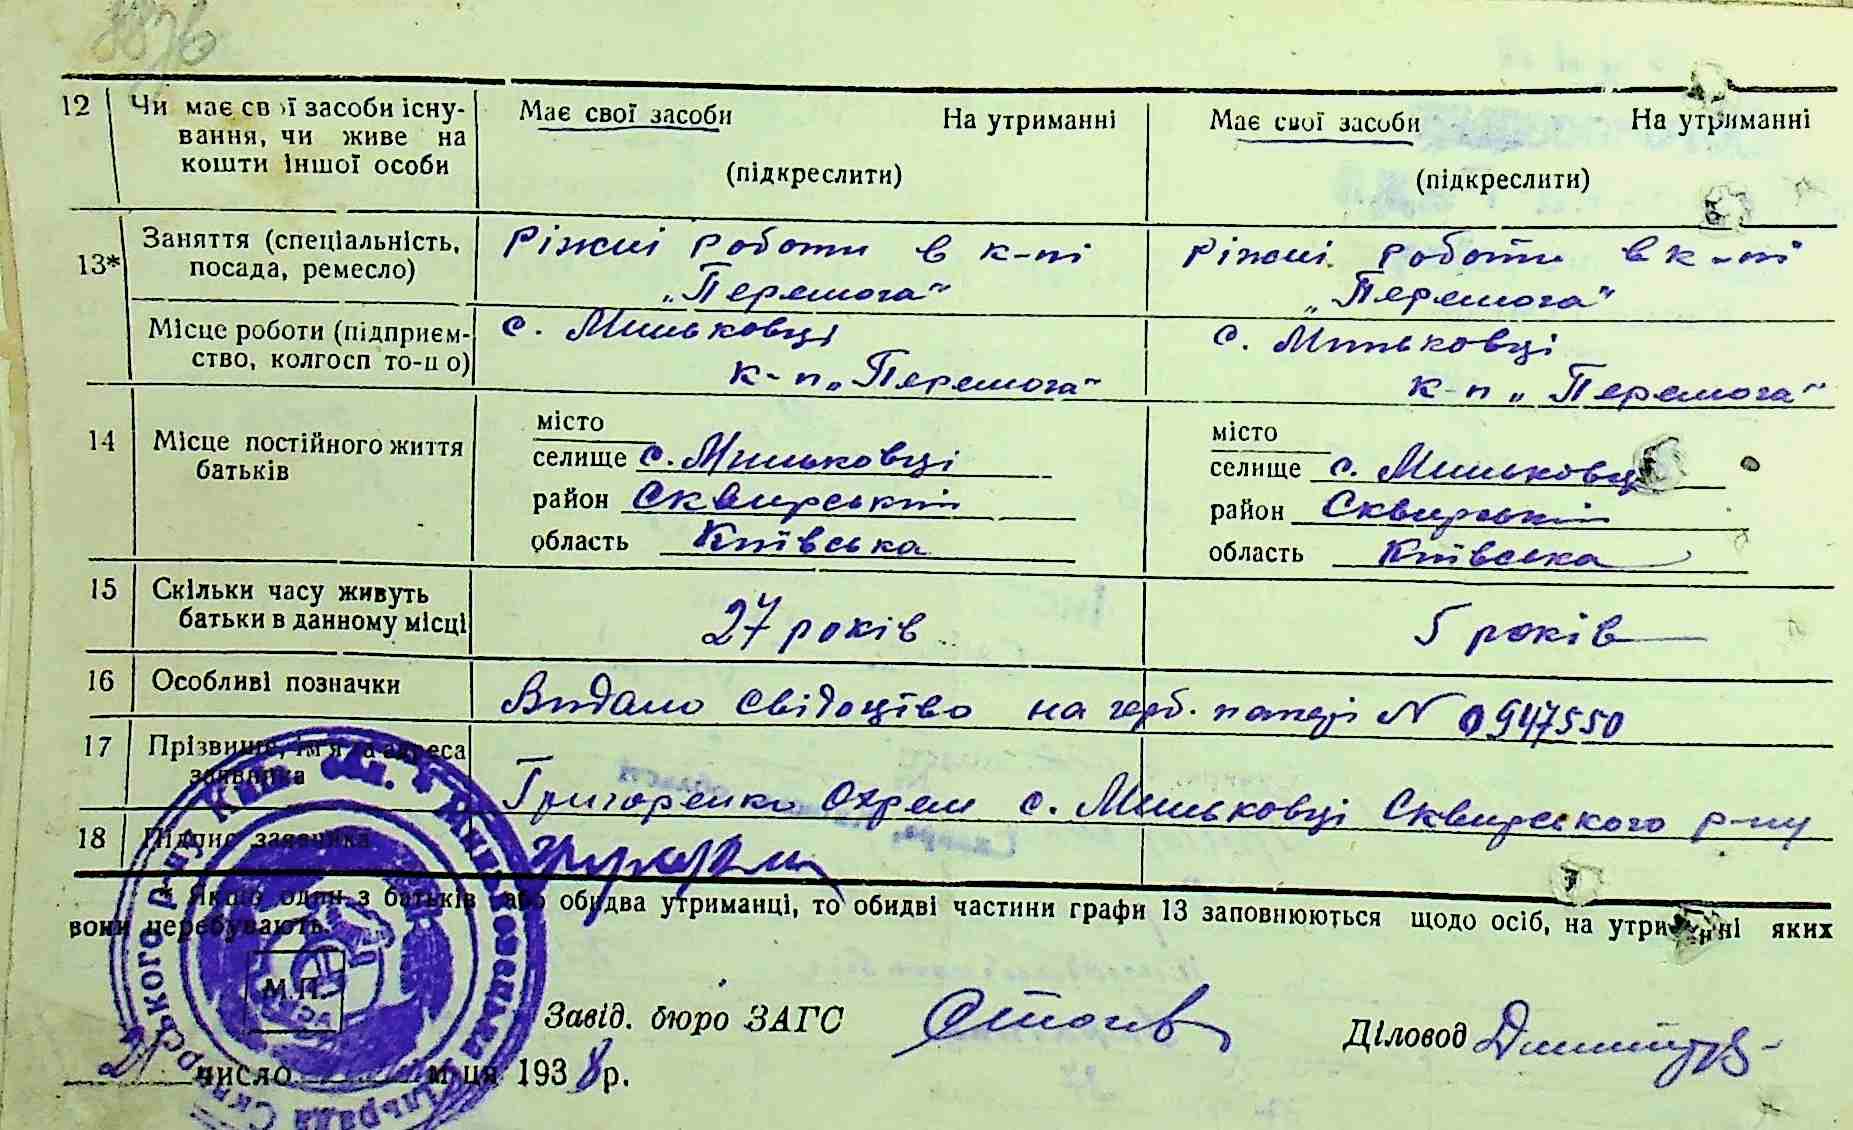 12 Чи має свої засоби існу-
вання, чи живе на
кошти іншої особи
Має свої засоби На утриманні
(підкреслити)
Має свої засоби На утриманні
(підкреслити)
13* Заняття (спеціальність,
посада, ремесло)
Ріжні роботи в к-пі
„Перемога“
Ріжні роботи в к-пі
„Перемога“
Місце роботи (підприєм-
ство, колгосп то-що)
с. Миньковці
к-п „Перемога“
с. Миньковці
к-п „Перемога“
14 Місце постійного життя
батьків
місто
селище с. Миньковці
район Сквирський
область Київська
місто
селище с. Миньковці
район Сквирський
область Київська
15 Скільки часу живуть
батьки в данному місці
27 років
5 років
16 Особливі позначки
Видано свідоцтво на герб. папері N 0947550
17 Прізвище, ім'я та адреса
заявника
Григоренко Охрем с. Миньковці Сквирського р-ну
18 Підпис заявника
* Якщо один з батьків або обидва утриманці, то обидві частини графи 13 заповнюються щодо осіб, на утриманні яких
вони перебувають.
М.П.
Завід. бюро ЗАГС
Діловод
число м-ця 1938 р.